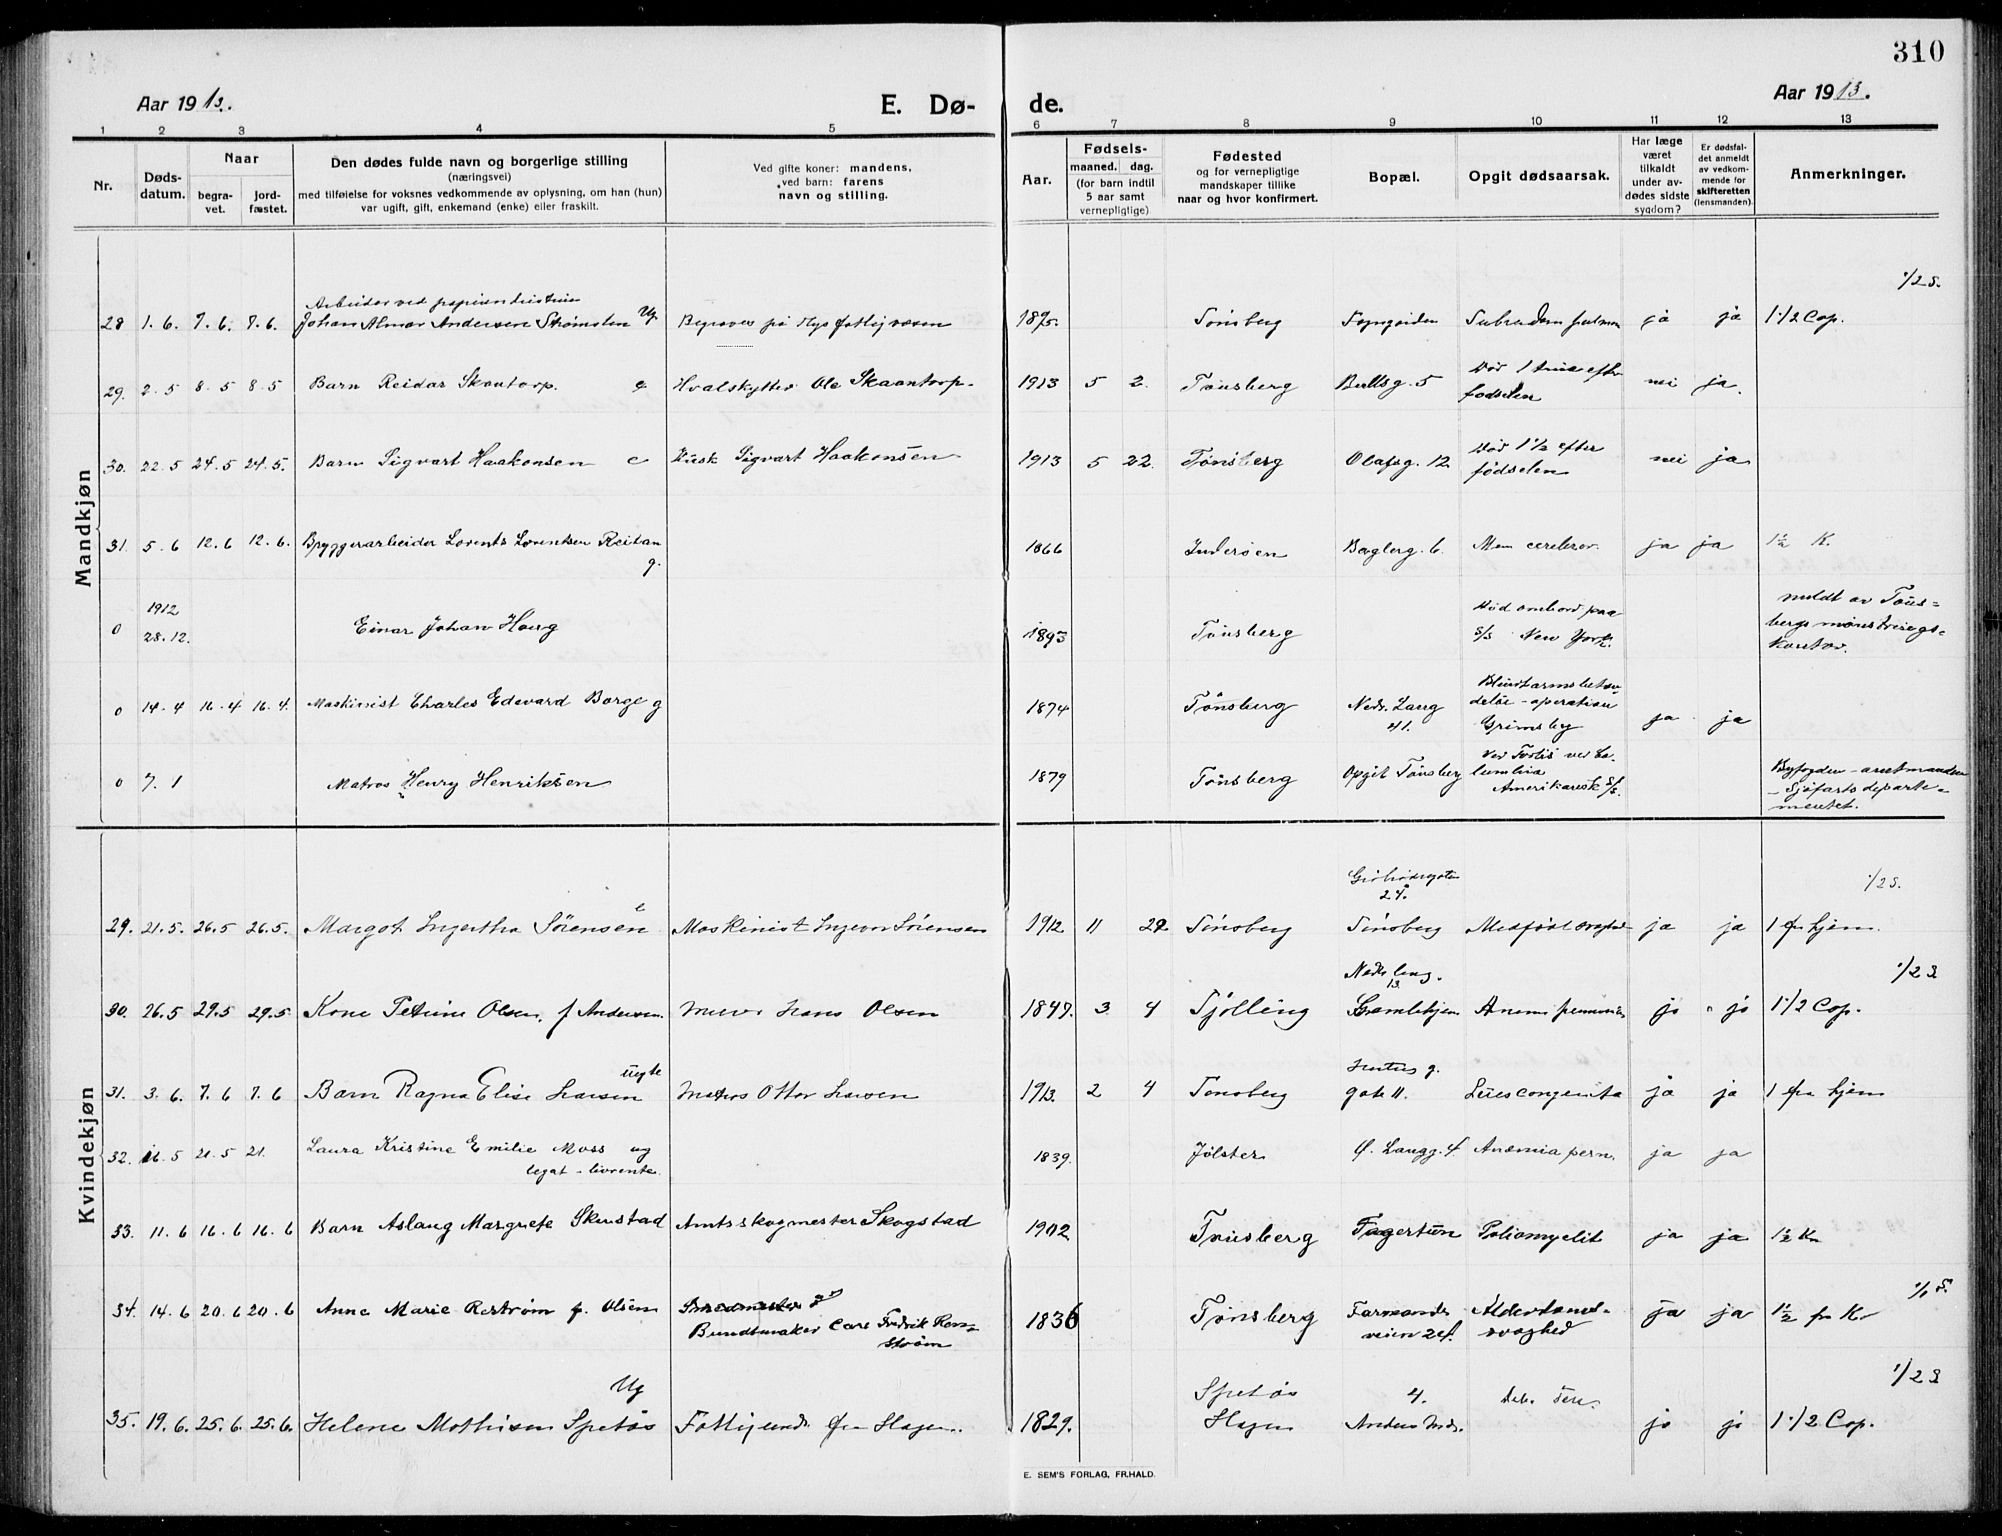 310
Aar 1913.
E. Dø- de.
Aar 1913.
1 2 3 4 5 6 7 8 9 10 11 12 13
Nr.
Døds-
datum.
Naar
begra-
vet.
jord-
fæstet.
Den dødes fulde navn og borgerlige stilling
(næringsvei)
med tilføielse for voksnes vedkommende av oplysning, om han (hun)
var ugift, gift, enkemand (enke) eller fraskilt.
Ved gifte koner: mandens,
ved barn: farens
navn og stilling.
Aar.
Fødsels-
maaned. dag.
(for barn indtil
5 aar samt
vernepligtige)
Fødested
og for vernepligtige
mandskaper tillike
naar og hvor konfirmert.
Bopæl.
Opgit dødsaarsak.
Har læge
været
tilkaldt
under av-
dødes sidste
sygdom?
Er dødsfal-
det anmeldt
av vedkom-
mende for
skifteretten
(lensmanden).
Anmerkninger.
Mandkjøn
1/2 S.
Arbeider ved papirindustrien
28 1.6. 7.6. 7.6. Johan Almar Andersen Strømsten Ug. Begraves på fattigvæsen 1895. Tønsberg ja ja 1 1/2 Cop.
29. 2.5 8.5 8.5 Barn Reidar Skontorp. e Hvalskytter Ole Skaantorp. 1913 5 2. Tønsberg Bullsg. 5 Död 1 time efter
fødselen nei ja.
30. 22.5 24.5 24.5. Barn Sigvart Haakonsen e Kusk Sigvart Haakonsen 1913 5 22. Tønsberg Olafsg. 12 Död 1 1/2 efter
fødselen nei ja
31. 5.6 12.6 12.6. Bryggerarbeider Lorents Lorentsen Reitan
g. 1866 Inderøen Baglerg. 6. ja ja 1 1/2 K.
0 1912
28.12. Einar Johan Haug 1893 Tønsberg Död ombord paa
S/S New York. meldt av Töns-
bergs mønstrings-
kontor.
0 14.4 16.4 16.4. Maskinist Charles Edevard Borge g 1874 Tønsberg Nedr. Lang
41. Blindtarmsbetæn-
delse - operation
Grimsby ja ja
0 7.1 Matros Henry Henriksen 1879 Tønsberg Opgit Tønsberg Ved Forlis ved Co-
lumbia
Amerikansk S/S. Byfogden - amtmanden
- Sjøfartsdeparte-
mentet.
Kvindekjøn
24. 1/2 S.
29. 21.5. 26.5 26.5. Margot Ingertha Sørensen e Maskinist Ingvar Sørensen 1912 11 29 Tønsberg Tønsberg Medfødt svaghed ja ja 1 fra hjem.
Nedr. Lang.
13. 1/2 S
30. 26.5 29.5 29.5. Kone Petrine Olsen. f Andersen. Murer Hans Olsen 1847. 3 4 Tjølling Gamlehjem ja ja 1 1/2 Cop.
31. 3.6. 7.6 7.6 Barn Ragna Elise Larsen uegte Matros Ottar Larsen 1913. 2 4 Tønsberg gate 11. Lues congenita ja ja 1 fra hjem
32. 16.5 21.5 21. Laura Kristine Emilie Moss ug
legat - livrente. 1839. Jølster Ø. Langg. 4 Anæmia pern. ja ja
33. 11.6 16.6 16.6 Barn Aslaug Margrete Skustad Amtsskogmester Skogstad 1902 Tønsberg Fagertun Poliomyelit ja ja 1 1/2 Kr
34. 14.6 20.6 20.6 Anne Marie Restrøm f. Olsen Bundtmaker Carl Fredrik Ren-
strøm 1836 Tønsberg Farmands
veien 24. Alderdoms-
svaghed ja ja 1 1/2 fra Kr 1/1 S.
Ug 1/2 S
35. 19.6. 25.6. 25.6. Helene Mathisen Spetås Fattigund. fra Hagen. 1829. Spetås
Hagen 4.
Anders Mds. Deb. sen. ja ja 1 1/2 Cop.
E. SEM'S FORLAG, FR.HALD.